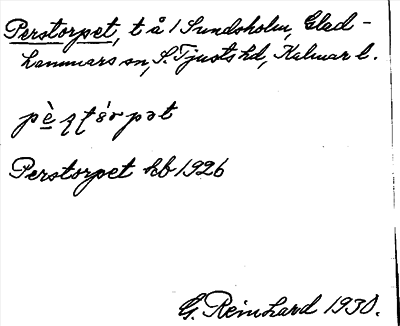 Perstorpet, t å 1 Sundsholm, Glad-
hammars sn, S. Tjusts hd, Kalmar l.
Perstorpet kb 1926
G. Reinhard 1930.